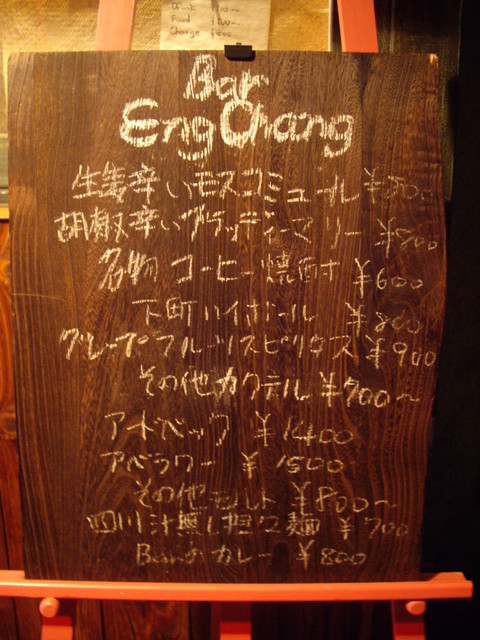 Drink
Food
Charge
Bar
Eng Chang
生姜辛いモスコミュール ¥800
胡椒辛いブラッディーマリー ¥800
名物 コーヒー焼酎 ¥600
下町ハイボール ¥800
グレープフルーツスピリタス ¥900
その他カクテル ¥700~
アードベック ¥1400
アベラワー ¥1500
その他モルト ¥800~
四川汁無し担々麺 ¥700
Barのカレー ¥800